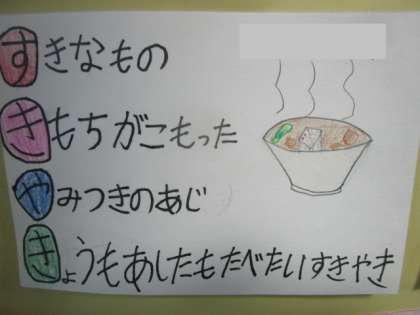 すきなもの
きもちがこもった
やみつきのあじ
きょうもあしたもたべたいすきやき